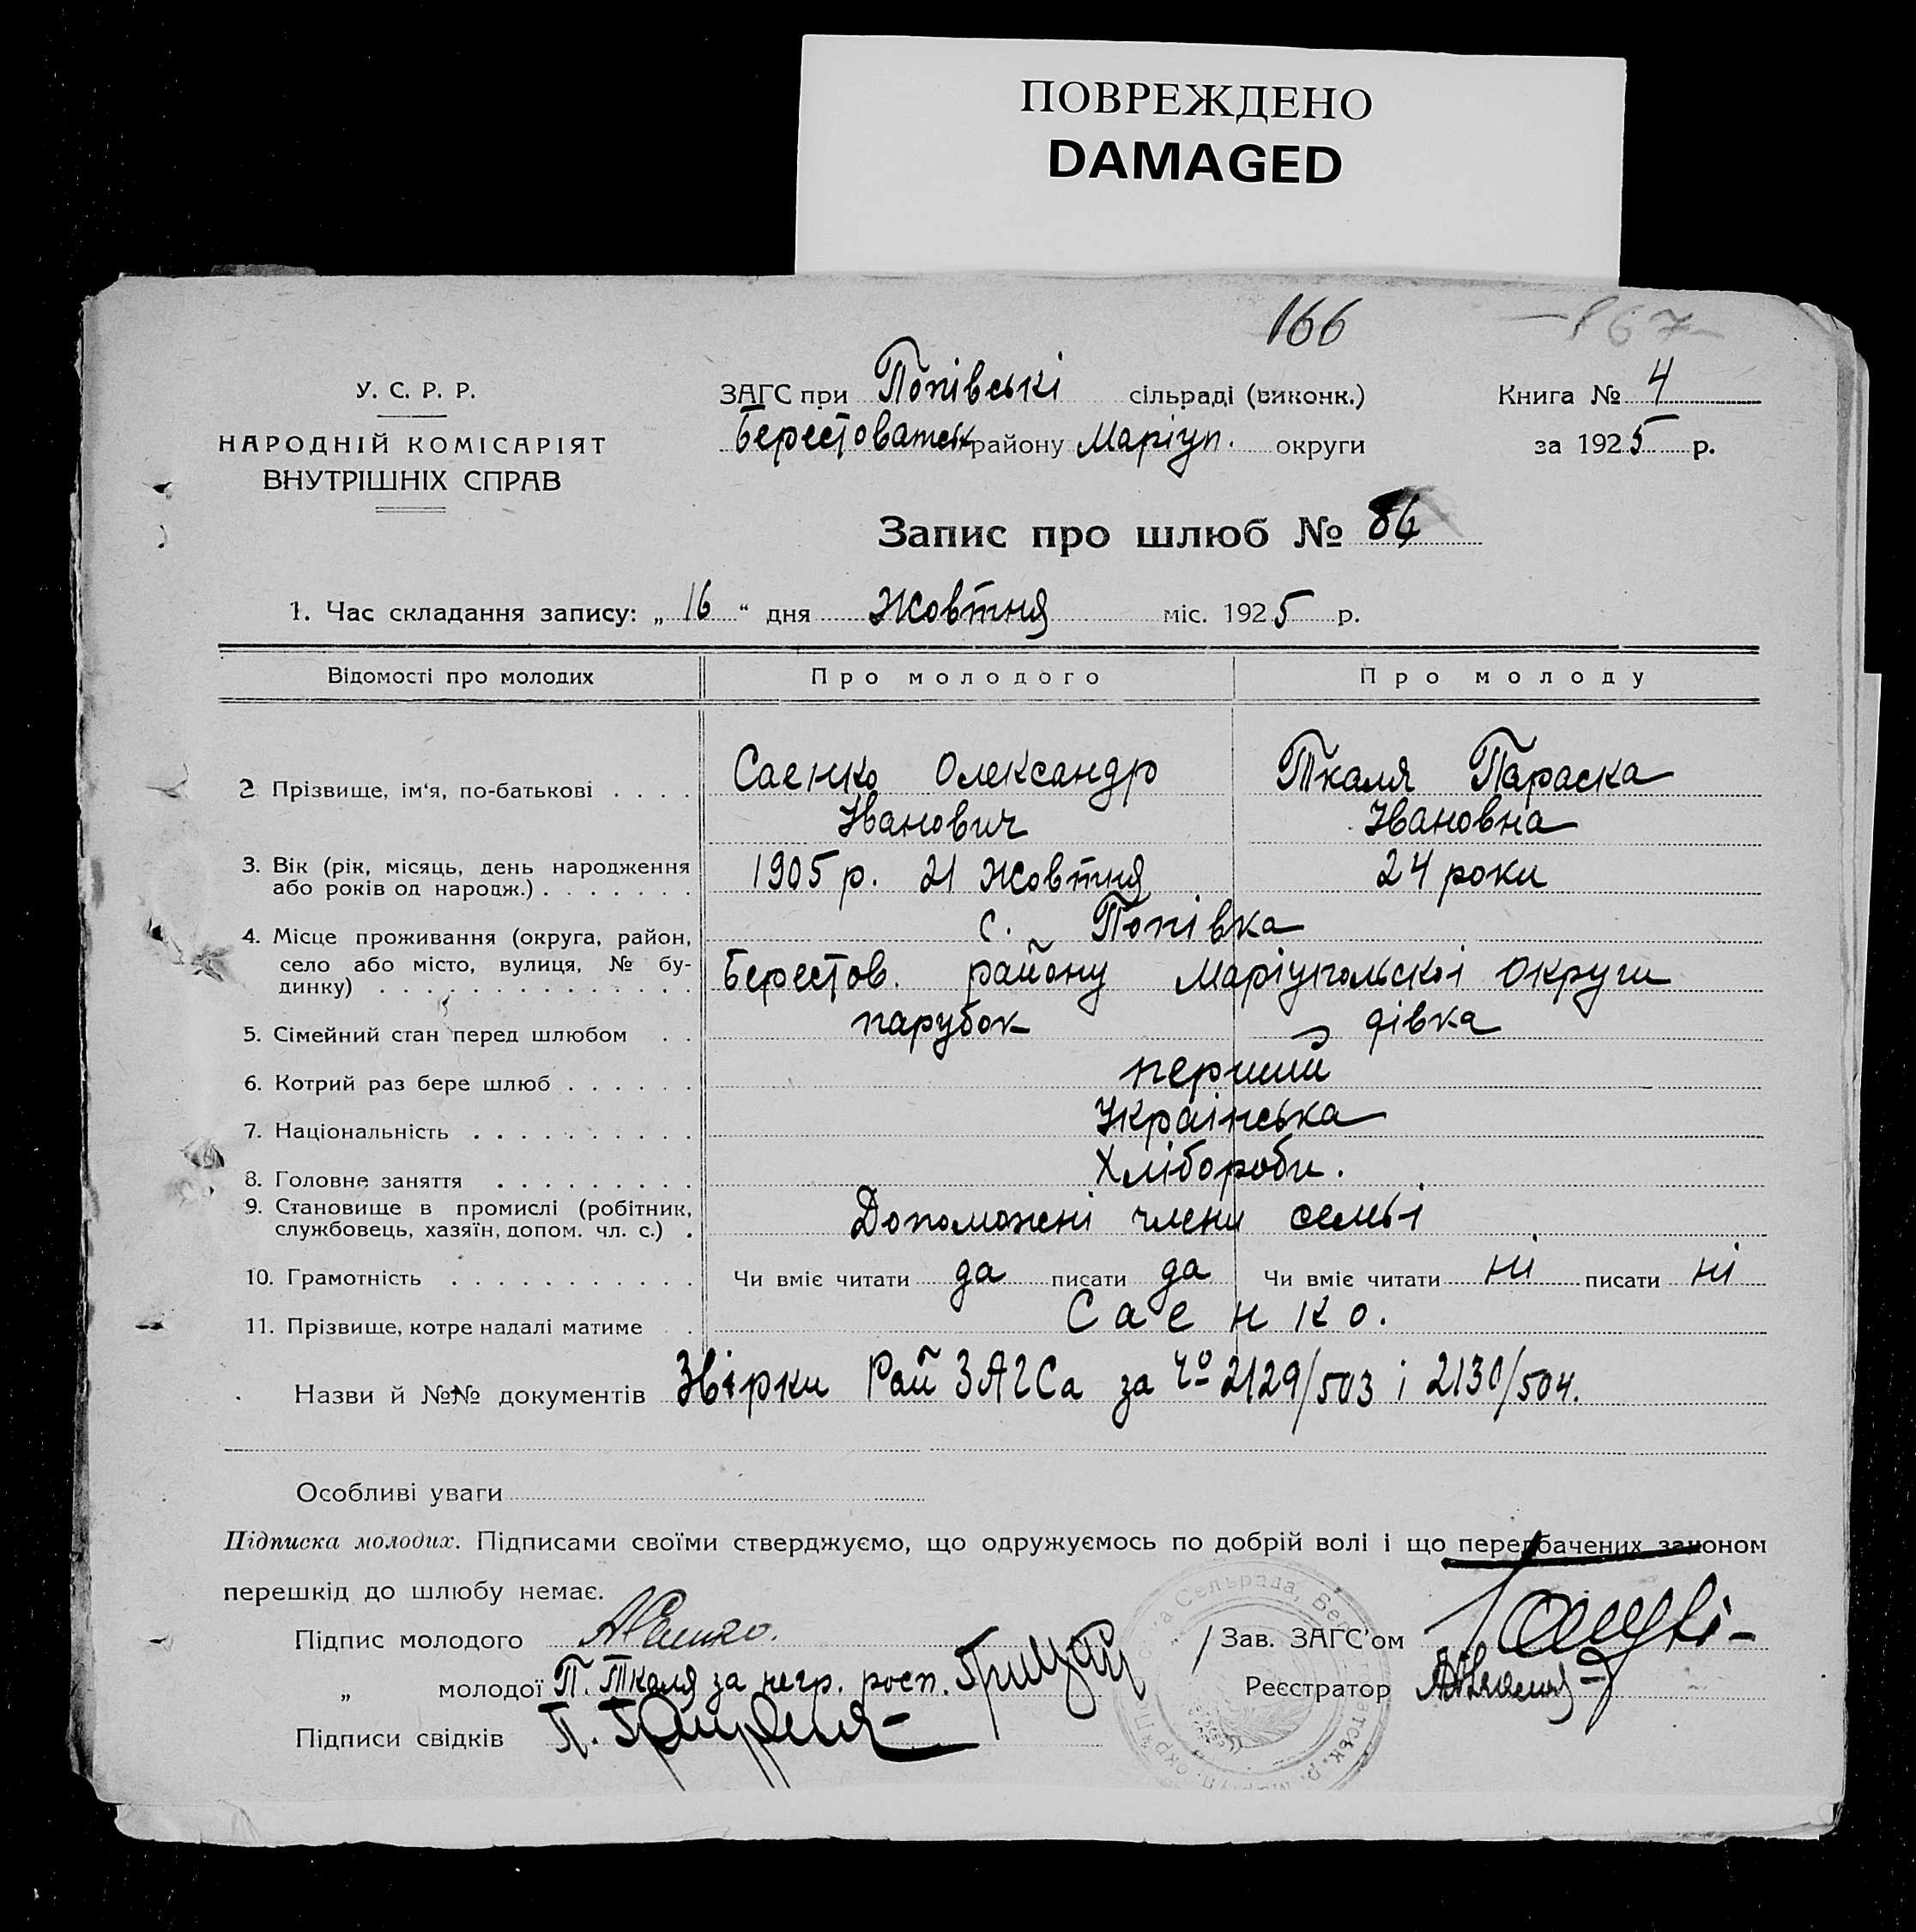 ПОВРЕЖДЕНО
DAMAGED
166
867
У. С. Р. Р.
НАРОДНІЙ КОМІСАРІЯТ
ВНУТРІШНІХ СПРАВ
ЗАГС при Попівські сільраді (виконк.)
Берестоватськ району Маріуп. округи
Книга № 4
за 1925 р.
Запис про шлюб № 86
1. Час складання запису: „ 16 “ дня Жовтня міс. 1925 р.
Відомості про молодих Про молодого Про молоду
2 Прізвище, ім‘я, по-батькові . . . . Саенко Олександр Ткаля Параска
Іванович Івановна
3. Вік (рік, місяць, день народження
або років од народж.) . . . . . . . 1905 р. 21 Жовтня 24 роки
4. Місце проживання (округа, район, с. Попівка
село або місто, вулиця, № бу-
динку) . . . . . . . . . . . . . . Берестов. району Маріупольскоі округи
5. Сімейний стан перед шлюбом . . парубок дівка
6. Котрий раз бере шлюб . . . . . . перший
7. Національність . . . . . . . . . . Украінська
8. Головне заняття . . . . . . . . . Хлібороби.
9. Становище в промислі (робітник,
службовець, хазяїн, допом. чл. с.) . Допоможені члени семьі
10. Грамотність . . . . . . . . . . . Чи вміє читати да писати да Чи вміє читати ні писати ні
11. Прізвище, котре надалі матиме . Саенко.
Назви й №№ документів Звірки Рай ЗАГСа за № 2129/503 і 2130/504.
Особливі уваги
Підписка молодих. Підписами своїми стверджуємо, що одружуємось по добрій волі і що передбачених законом
перешкід до шлюбу немає.
Підпис молодого
Зав. ЗАГС'ом
„ молодої П. Ткаля за негр. росп. Грицай
Реєстратор
Підписи свідків П.